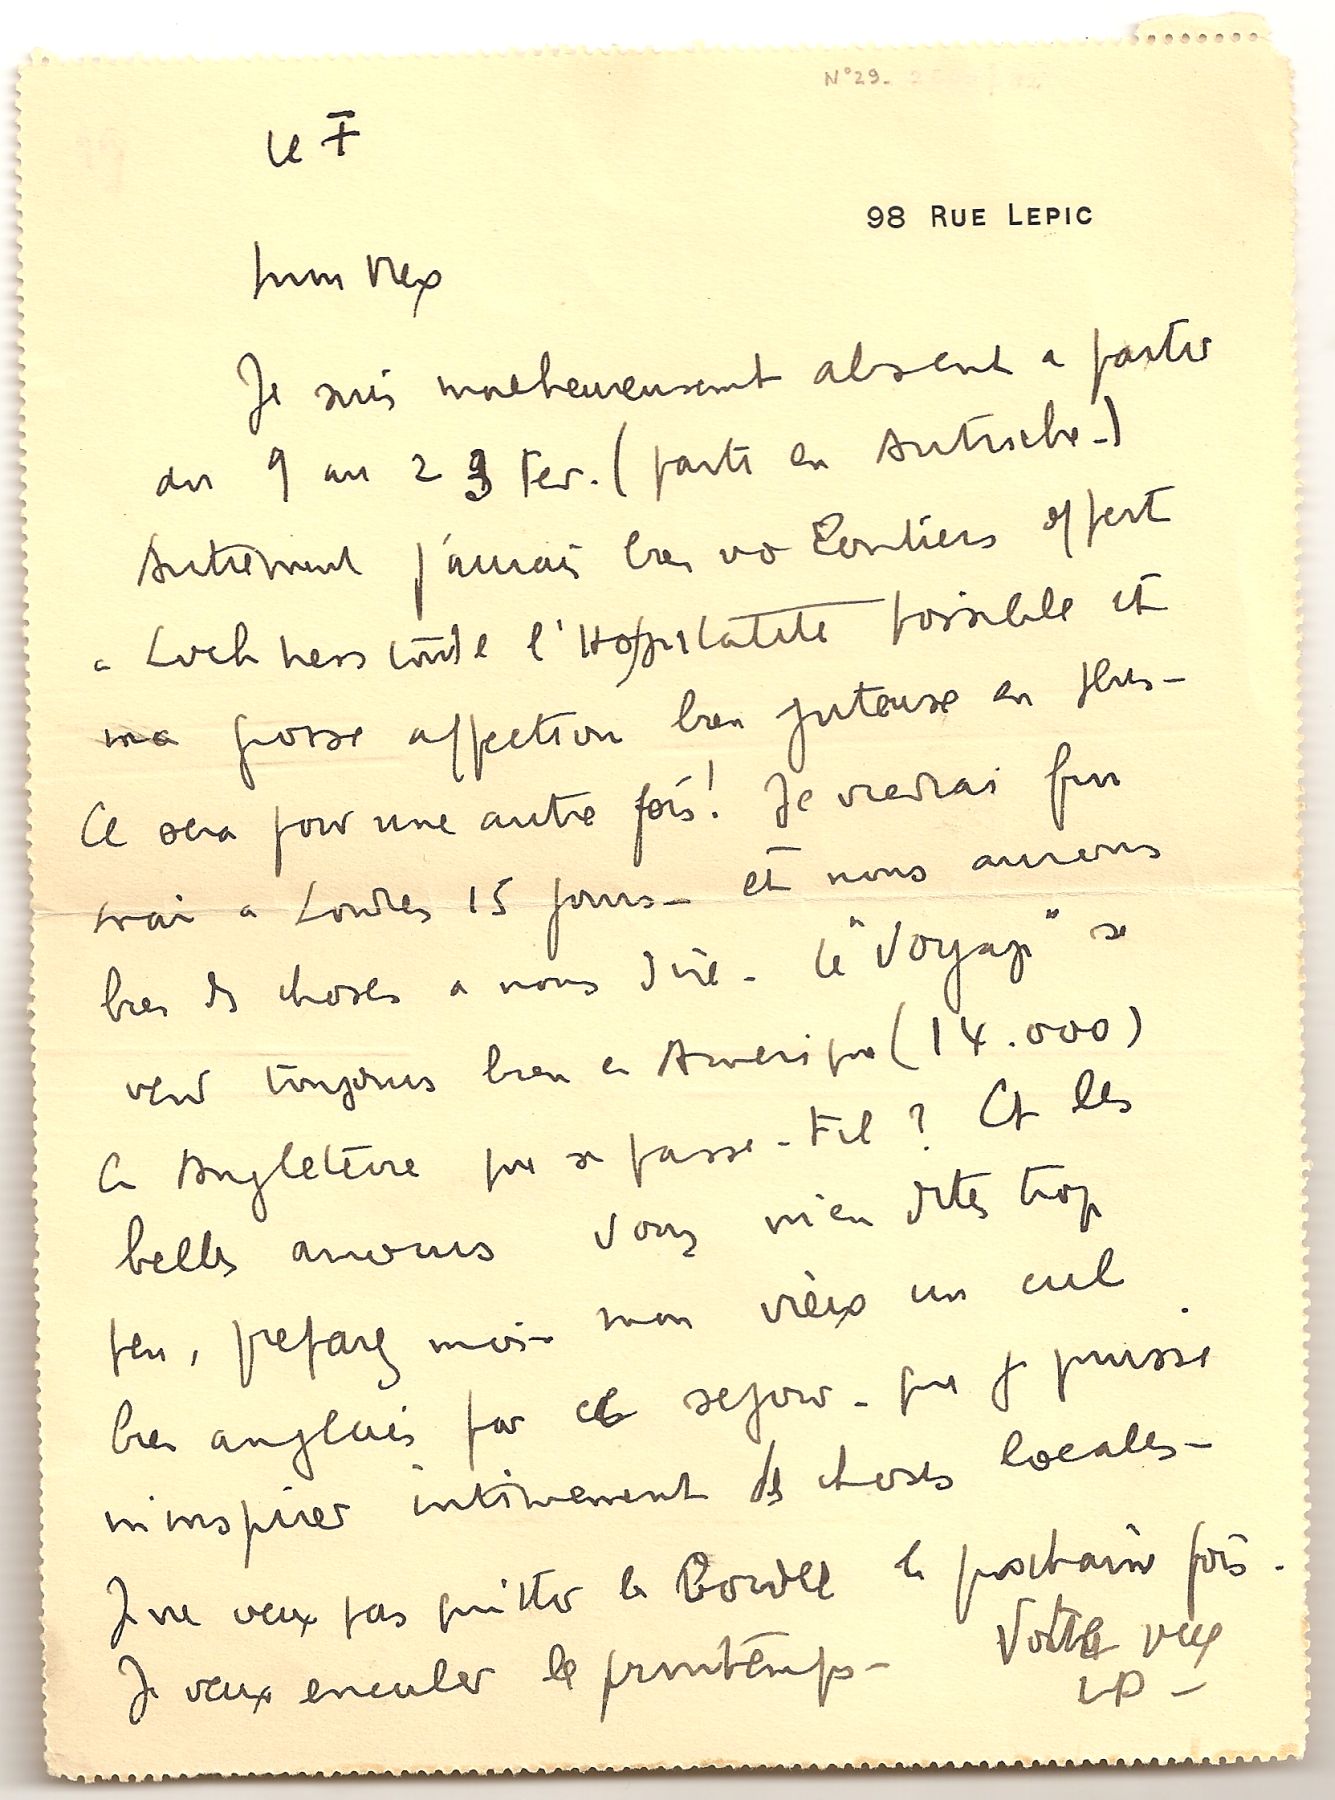 N°29.
Le 7
98 RUE LEPIC
mon vieux
Je suis malheureusement absent a partir
du 9 au 23 Fev. (parti en Autriche -)
Autrement j'aurais bien offert
a Loch Ness toute l'Hospitalité possible et
ma grosse affection bien juteuse en plus -
Ce sera pour une autre fois! Je viendrai fin
mai a Londres 15 jours - et nous aurons
bien des choses a nous dire - Le "Voyage" se
vend toujours bien en Amerique (14.000)
En Angleterre que se passe-t-il? Et les
belles amours Vous m'en dites trop
peu, preparez moi - mon vieux un cul
bien anglais par ce sejour - que je puisse
m'inspirer intimement des choses locales -
Je ne veux pas quitter le Bordel la prochaine fois.
Je veux enculer le printemps - Votre vieux
LD -